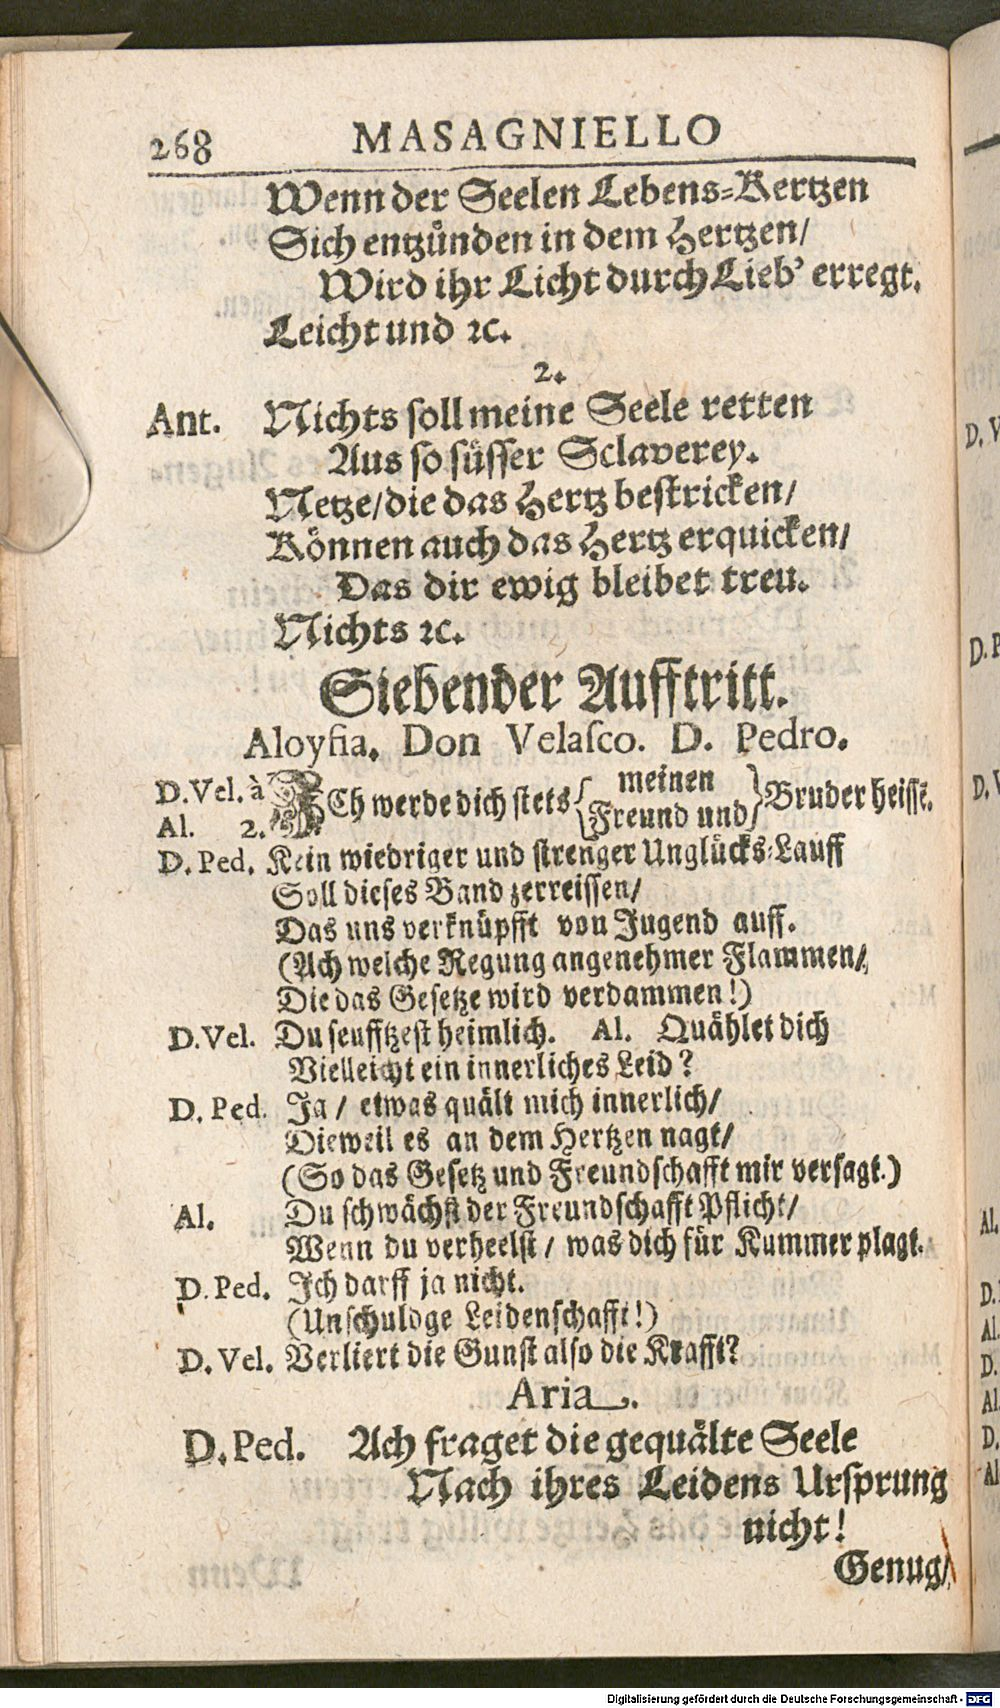 268 MASAGNIELLO
Wenn der Seelen Lebens-Kertzen
Sich entzünden in dem Hertzen/
Wird ihr Licht durch Lieb' erregt.
Leicht und ꝛc.
2.
Ant. Nichts soll meine Seele retten
Aus so süsser Sclaverey.
Netze/die das Hertz bestricken/
Können auch das Hertz erquicken/
Das dir ewig bleibet treu.
Nichts ꝛc.
Siebender Aufftritt.
Aloysia. Don Velasco. D. Pedro.
D.Vel. à Al. 2. ICh werde dich stets { meinen Freund und } Bruder heissẽ.
D. Ped. Kein wiedriger und strenger Unglücks-Lauff
Soll dieses Band zerreissen/
Das uns verknüpfft von Jugend auff.
(Ach welche Regung angenehmer Flammen/
Die das Gesetze wird verdammen!)
D.Vel. Du seufftzest heimlich. Al. Quählet dich
Vielleicht ein innerliches Leid?
D. Ped. Ja / etwas quält mich innerlich/
Dieweil es an dem Hertzen nagt/
(So das Gesetz und Freundschafft mir versagt.)
Al. Du schwächst der Freundschafft Pflicht/
Wenn du verheelst / was dich für Kummer plagt.
D. Ped. Ich darff ja nicht.
(Unschuldge Leidenschafft!)
D. Vel. Verliert die Gunst also die Krafft?
Aria.
D. Ped. Ach fraget die gequälte Seele
Nach ihres Leidens Ursprung
nicht!
Genug/
D. V
D. P
D. V
Al.
D.
Al.
D.
Al.
D.
Al
Digitalisierung gefördert durch die Deutsche Forschungsgemeinschaft - DFG